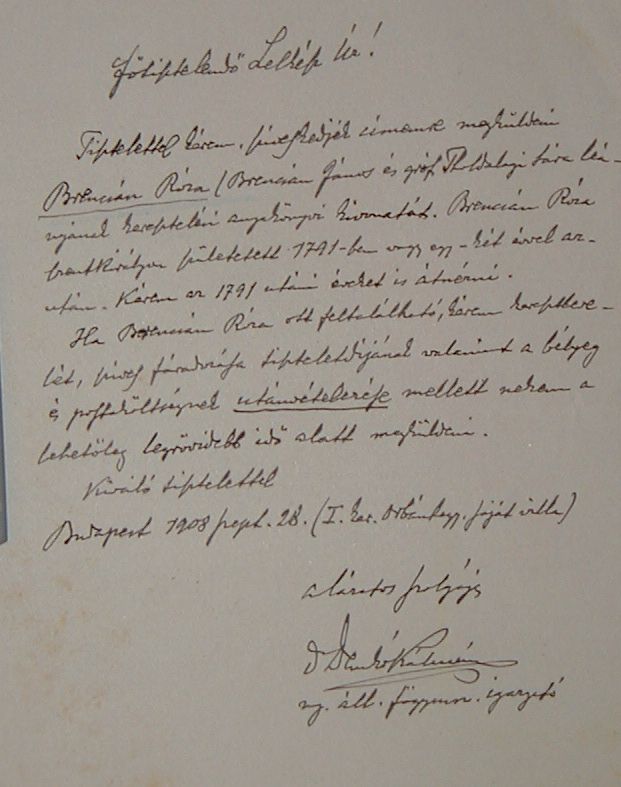 Főtisztelendő Lelkész Úr!
Tisztelettel kérem, szíveskedjék címemre megküldeni
Brencsán Róza (Brencsán János és gróf Tholdalagi Sára leá-
nyának keresztelési anyakönyvi kivonatát. Brencsán Róza
Szentkirályon született 1791-ben vagy egy-két évvel az-
után. Kérem az 1791 utáni éveket is átnézni.
Ha Brencsán Róza ott feltalálható, kérem keresztleve-
lét, szíves fáradozása tiszteletdíjának valamint a bélyeg
és postaköltségnek utánvételezése mellett nekem a
lehetőleg legrövidebb idő alatt megküldeni.
Kiváló tisztelettel
Budapest 1908 szept. 28. (I. ker. Orbánhegy, saját villa)
alázatos szolgája
Kálmán
ny. áll. főgymn. igazgató